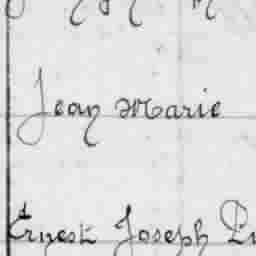 Jean Marie
Ernest Joseph